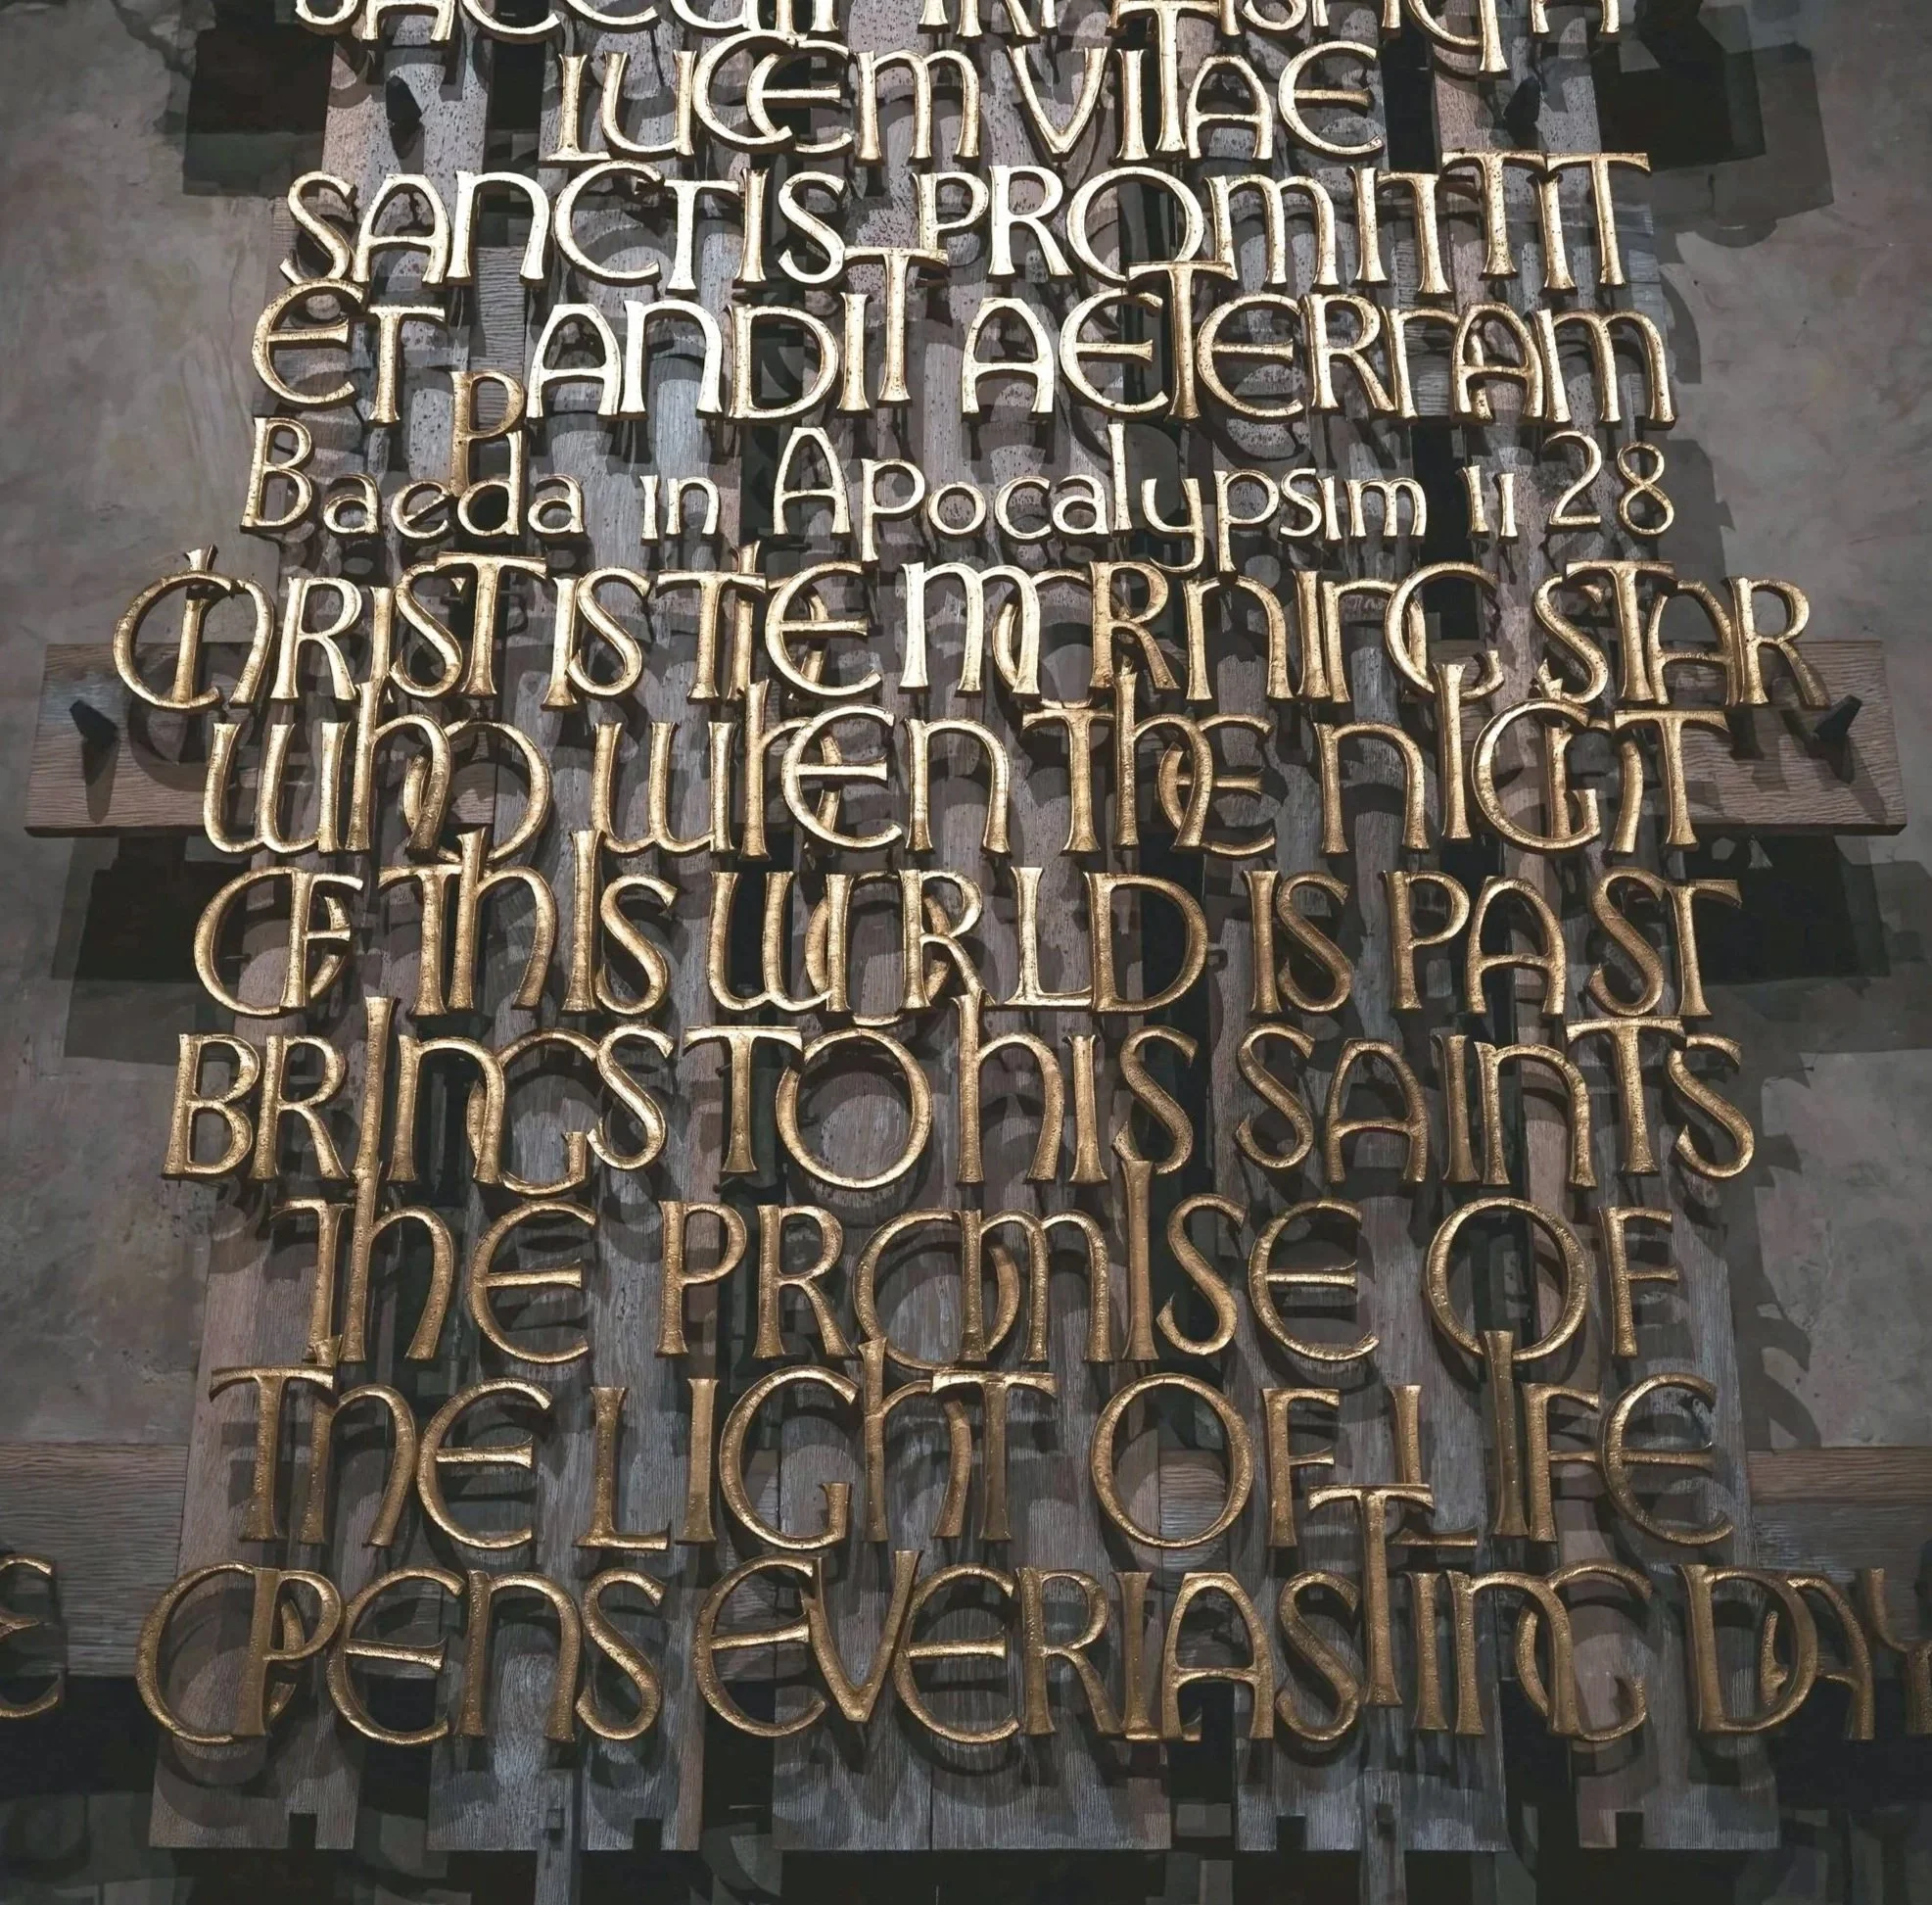 SAECULI TRANSACTA
LUCEM VITAE
SANCTIS PROMITTIT
ET PANDIT AETERNAM
Baeda in Apocalypsim ii 28
CHRIST IS THE MORNING STAR
WHO WHEN THE NIGHT
OF THIS WORLD IS PAST
BRINGS TO HIS SAINTS
THE PROMISE OF
THE LIGHT OF LIFE
& OPENS EVERLASTING DAY